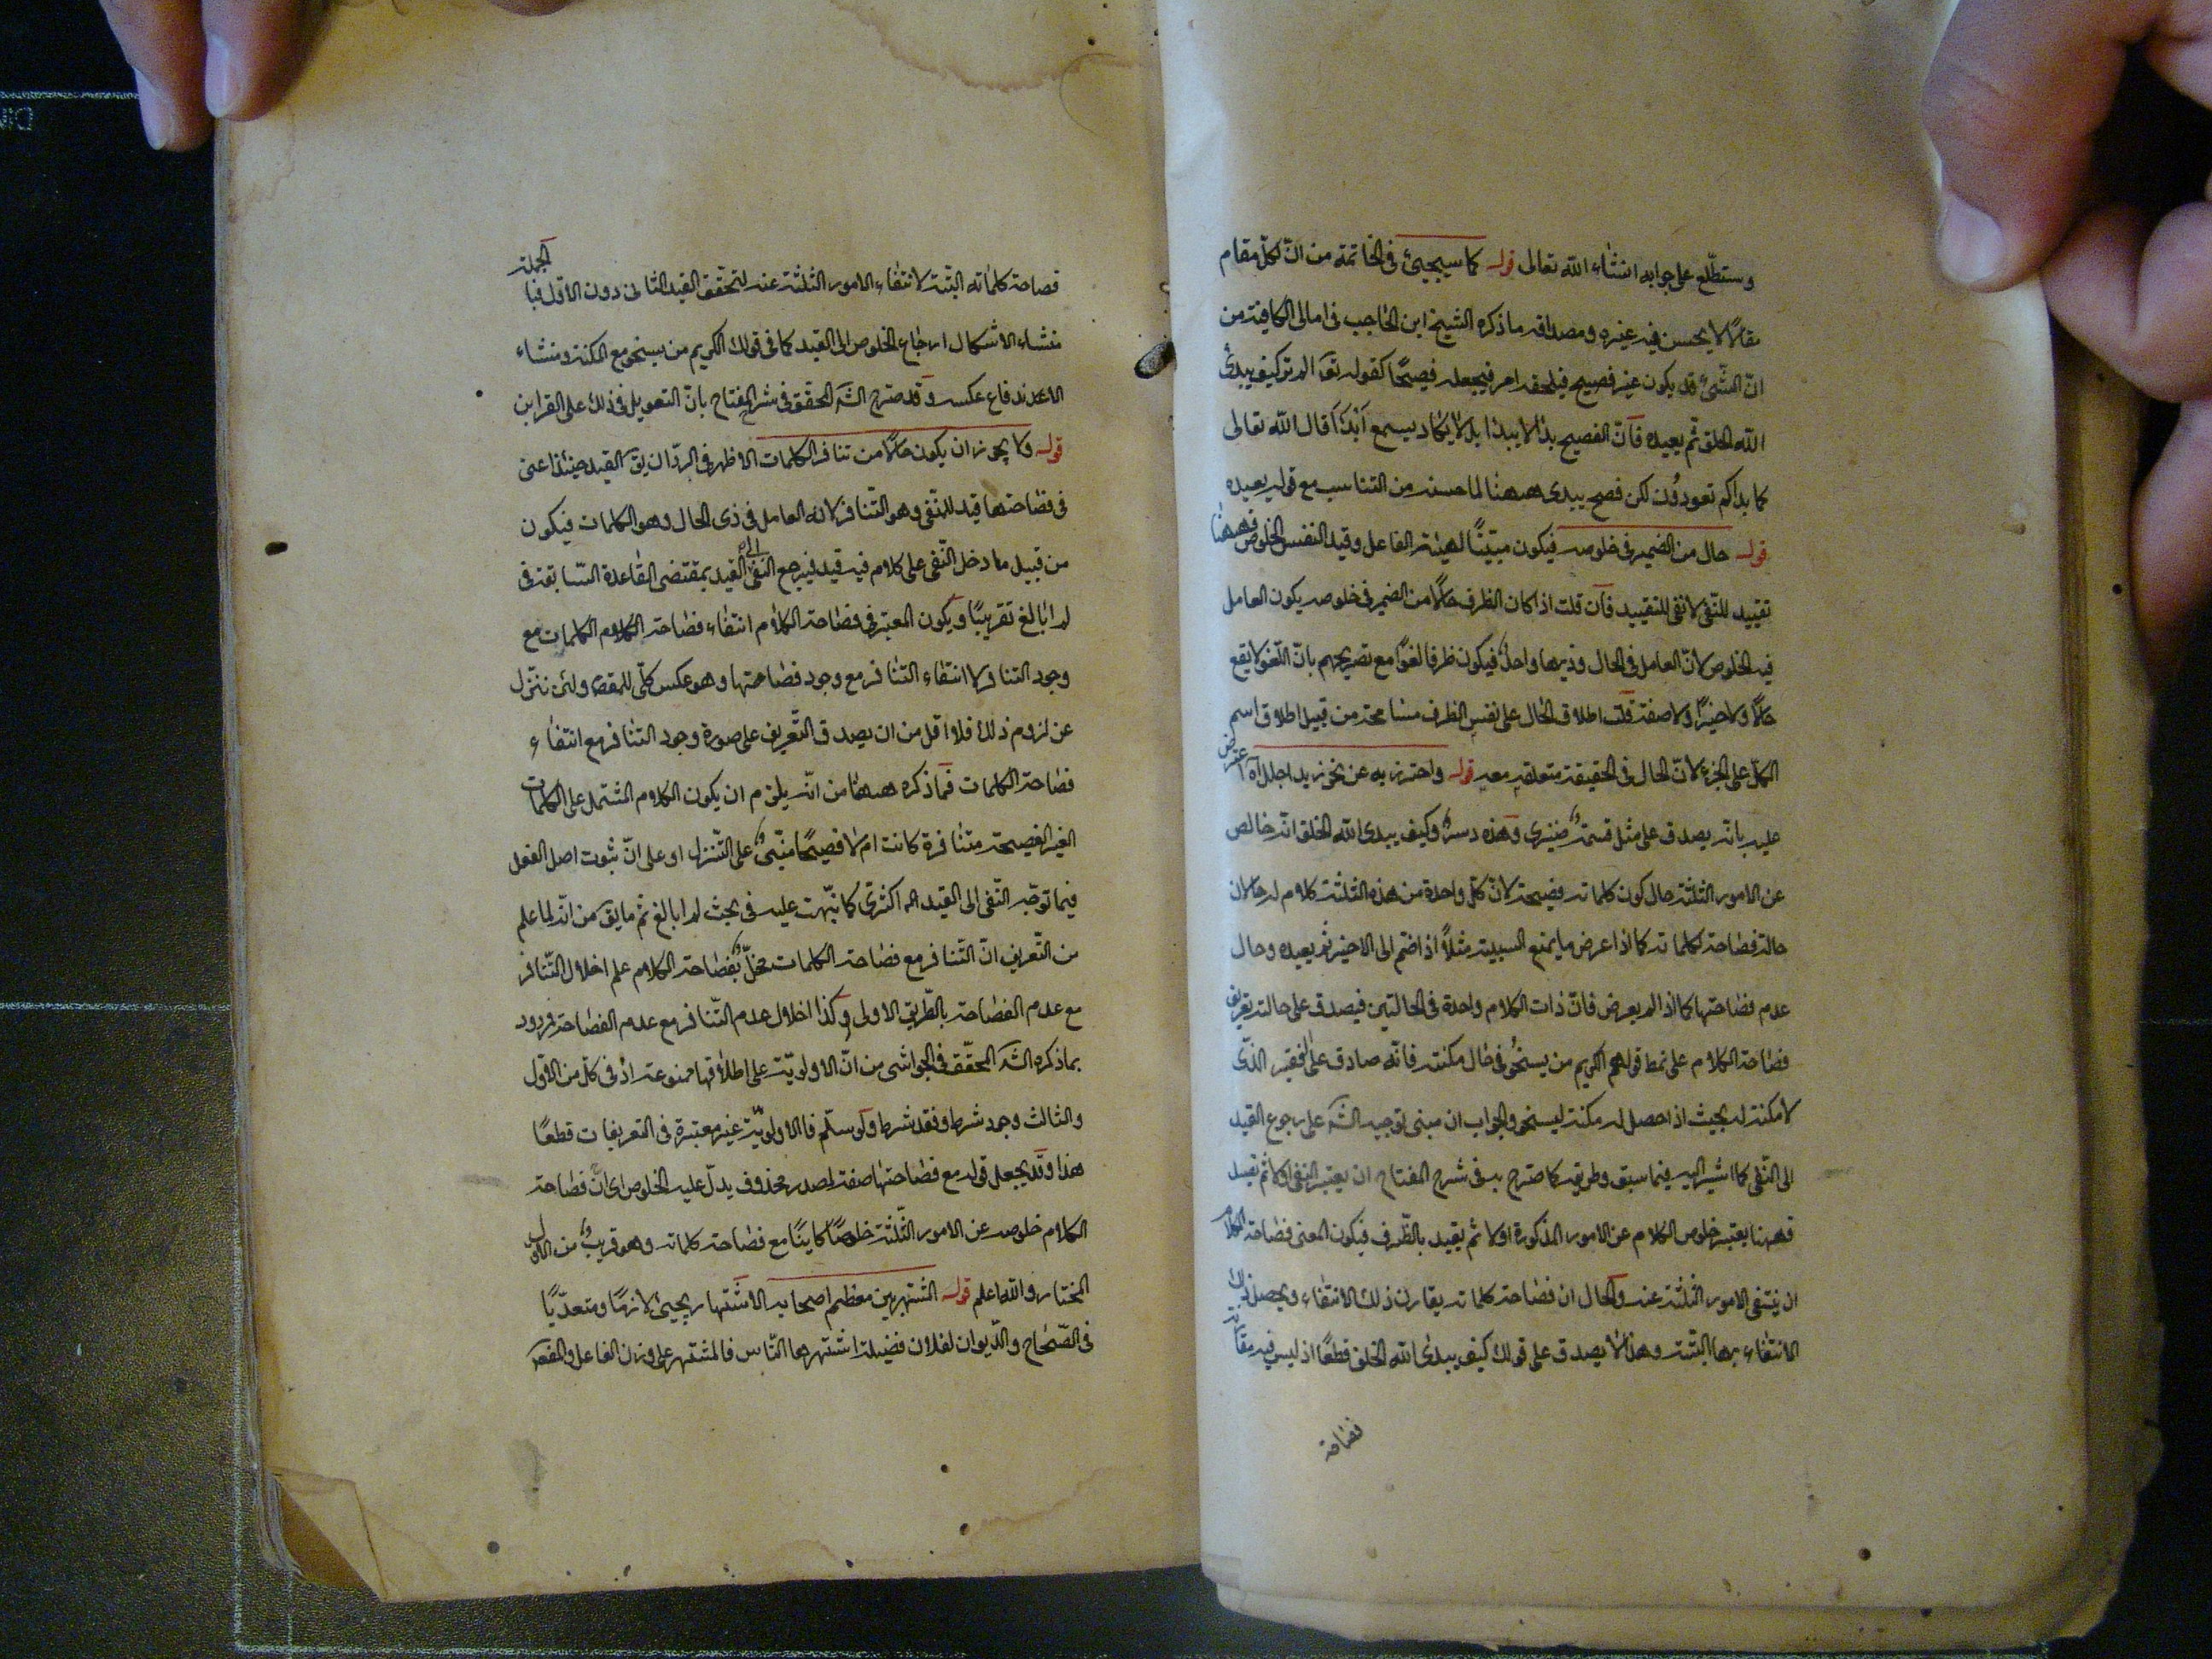 وستطّلع على جوابه انشاء الله تعالى قوله كما سيجيئ فى الخاتمة من انّ لكلّ مقام
مقالا لا يحسن فيه غيره ومصداقه ما ذكره الشيخ ابن الحاجب فى امالى الكافية من
انّ الشّئ قد يكون غير فصيح فيلحقه امر فيجعله فصيحًا كقوله تع الم تر كيف يبدئ
الله الخلق ثم يعيده فانّ الفصيح بدا لا يبدا بل لا يكاد يسمع أبدَأَ قال الله تعالى
كما بداكم تعودون لكن فصح يبدى ههنا لما حسنه من التناسب مع قوله يعيده
قوله حال من الضمير فى خلوصه فيكون مبيّنًا لهيئة الفاعل وقيد النفس الخلوص فههنا
تقييد للنّفى لا نفى للتقييد فان قلت اذا كان الظرف حالًا من الضمير فى خلوصه يكون العامل
فيه الخلوص لانّ العامل فى الحال وذيها واحدٌ فيكون ظرفا لغوًا مع تصريحهم بانّ اللّغو لا يقع
حالًا ولا خبرًا ولا صفة قلت اطلاق الحال على نفس الظرف مسامحة من قبيل اطلاق اسم
الكلّ على الجزء لانّ الحال فى الحقيقة متعلقه معه قوله واحترز به عن نحو زيد اجلل آه اعترض
عليه بانّه يصدق على مثل قسمةٌ ضيزى وهذه دسرٌ وكيف يبدى الله الخلق انّه خالص
عن الامور الثلثة حال كون كلماته فصيحة لانّ كلّ واحدة من هذه الثلثة كلام له حالان
حالة فصاحة لكلماته كما اذا عرض ما يمنع السببية مثلًا اذا ضم الى الاخير ثم يعيده وحال
عدم فصاحتها كما اذا لم يعرض فانّ ذات الكلام واحدة فى الحالتين فيصدق على حالته تعريف
فصاحة الكلام على نمط قولهم الكريم من يسخُو فى حال مكنته فانّه صادق على الفقير الذّى
لا مكنة له بحيث اذا حصل له مكنة ليسخو والجواب ان مبنى توجيه الشّ على رجوع القيد
الى النّفى كما اشير اليه فيما سبق وطريقه كما صرّح به فى شرح المفتاح ان يعتبر النفى اولا ثم يقيد
فههنا يعتبر خلوص الكلام عن الامور المذكورة اولا ثم يقيد بالظّرف فيكون المعنى فصاحة الكلام
ان ينتفى الامور الثلثة عنه والحال ان فصاحة كلماته يقارن ذلك الانتفاء ويحصل ذلك
الانتفاء بها البتّة وهذا لا يصدق على قولك كيف يبدئ الله الخلق قطعًا اذ ليس فيه مقارنة
فصاحة
فصاحة كلماته البتّة لانتفاء الامور الثلثة عنه لتحقّق القيد الثانى دون الاوّل فبالجملة
منشاء الاشكال ارجاع الخلوص الى القيد كما فى قولك الكريم من يسخو مع المكنة ومنشاء
الاندفاع عكسه وقد صرح الشّ المحقق فى شرح المفتاح بانّ التعويل فى ذلك على القراين
قوله ولا يجوز ان يكون حالًا من تنافر الكلمات الاظهر فى الردّ ان يق القيد حينئذ اعنى
فى فصاحتها قيد للمنّفى وهو التّنافر لانّه العامل فى ذى الحال وهو الكلمات فيكون
من قبيل ما دخل النّفى على كلام فيه قيد فيرجع النّفى الى القيد بمقتضى القاعدة السّابقة فى
لم ابالغ تقريبًا ويكون المعتبر فى فصاحة الكلام انتفاء فصاحة الكلام الكلمات مع
وجود التنافر لا انتفاء التنافر مع وجود فصاحتها وهو عكس كلّى للمقصه ولئن نتنزّل
عن لزوم ذلك فلا اقل من ان يصدق التّعريف على صورة وجود التنافر مع انتفاء
فصاحة الكلمات فما ذكره ههنا من انّه يلزم ان يكون الكلام المشتمل على الكلمات
الغير الفصيحة متنافرة كانت ام لا فصيحًا مبّنىٌ على التّنزل او على انّ ثبوت اصل الفعل
فيما توجّه النّفى الى القيد اكثرىّ كما نبّهت عليه فى بحث لم ابالغ ثم ما يق من انّه لما علم
من التّعريف انّ التّنافر مع فصاحة الكلمات مخلّ بفصاحة الكلام علم اخلال التّنافر
مع عدم الفصاحة بالطّريق الاولى وكذا اخلال عدم التّنافر مع عدم الفصاحة مردود
بما ذكره الشّ المحقّق فى الحواشى من انّ الاولويّة على اطلاقها ممنوعة اذ فى كلّ من الاوّل
والثالث وجود شرط وفقد شرط ولو سلّم فالاولويّة غير معتبرة فى التعريفات قطعًا
هذا وقد يجعل قوله مع فصاحتها صفة لمصدر محذوف يدلّ عليه الخلوص اى انّ فصاحة
الكلام خلوصه عن الامور الثّلثة خلوصًا كاينًا مع فصاحة كلماته وهو قريبٌ من الاول
المختار والله اعلم قوله المشتهرين معظم اصحابه الاشتهار يجيئ لازمًا ومتعدّيًا
فى الصّحاح والدّيوان لفلان فضيلة اشتهرها النّاس فالمشتهر على وزن الفاعل والمفعو